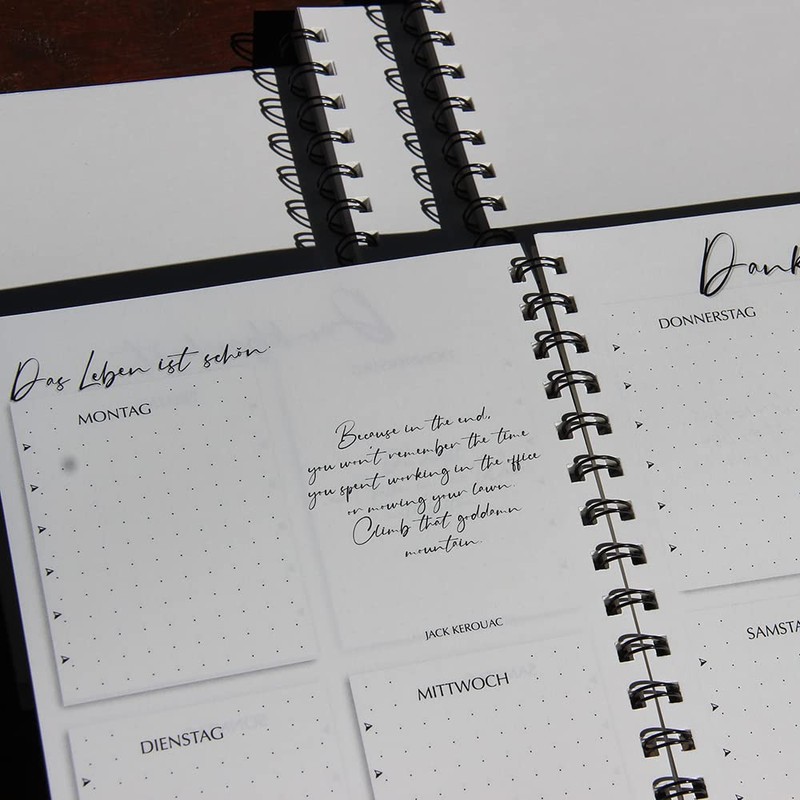 Das Leben ist schön.
MONTAG
Because in the end,
you won't remember the time
you spent working in the office
or mowing your lawn.
Climb that goddamn
mountain.
JACK KEROUAC
DIENSTAG
MITTWOCH
Dank
DONNERSTAG
SAMSTA